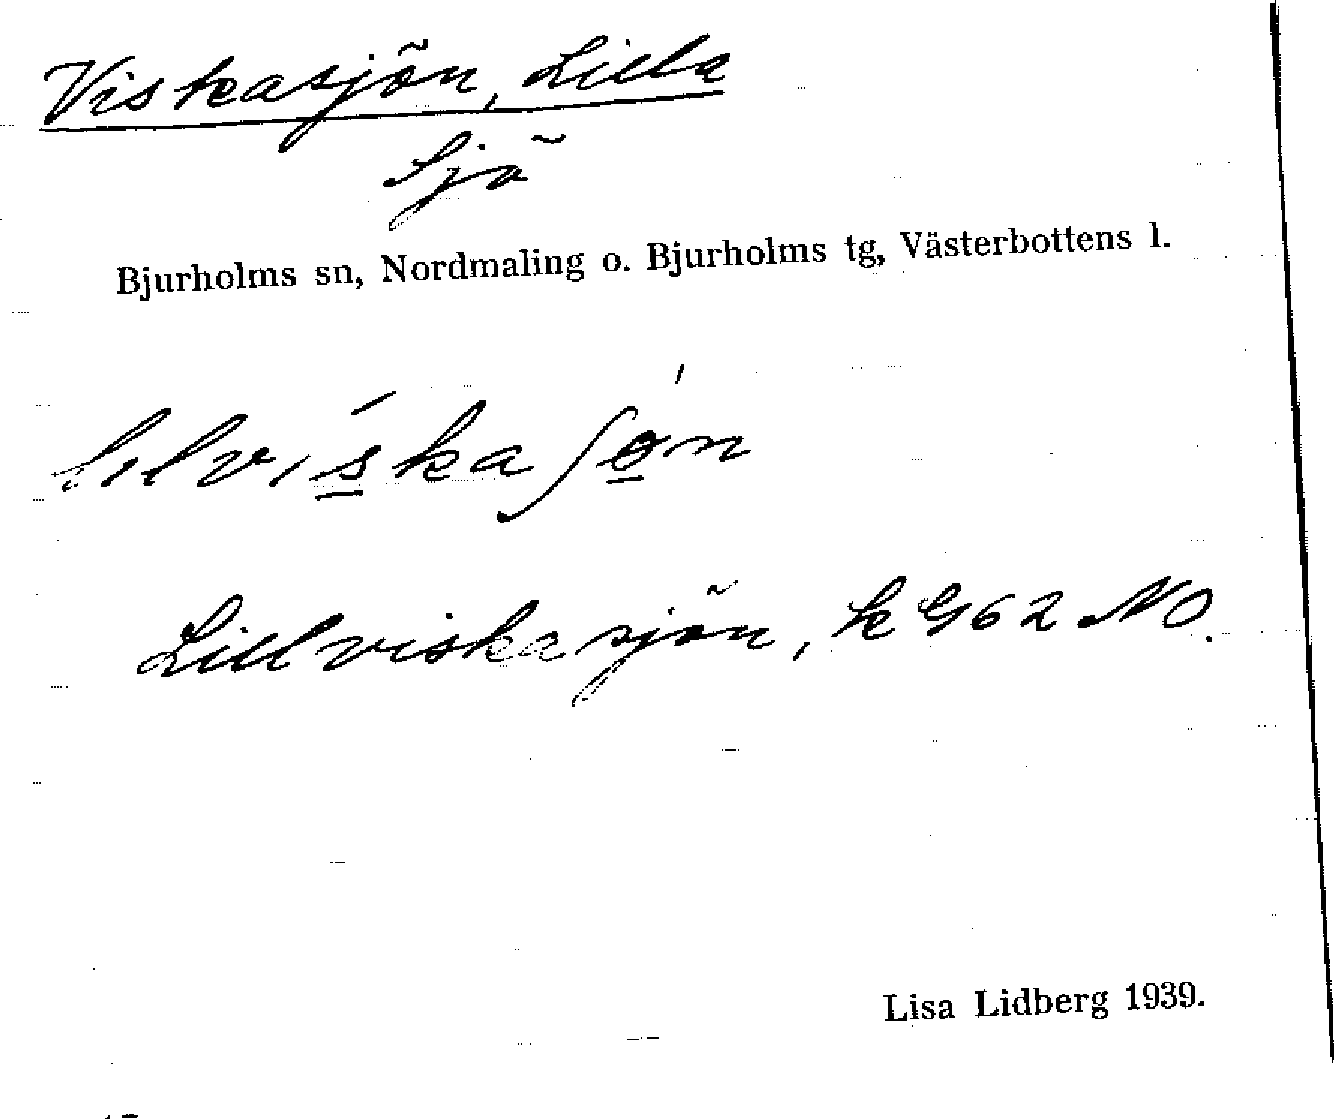 Viskasjön, Lilla
Sjö
Bjurholms sn, Nordmaling o. Bjurholms tg, Västerbottens l.
lilvi´s̲kaʃo̲´n
Lillviskasjön, k G62 NO.
Lisa Lidberg 1939.